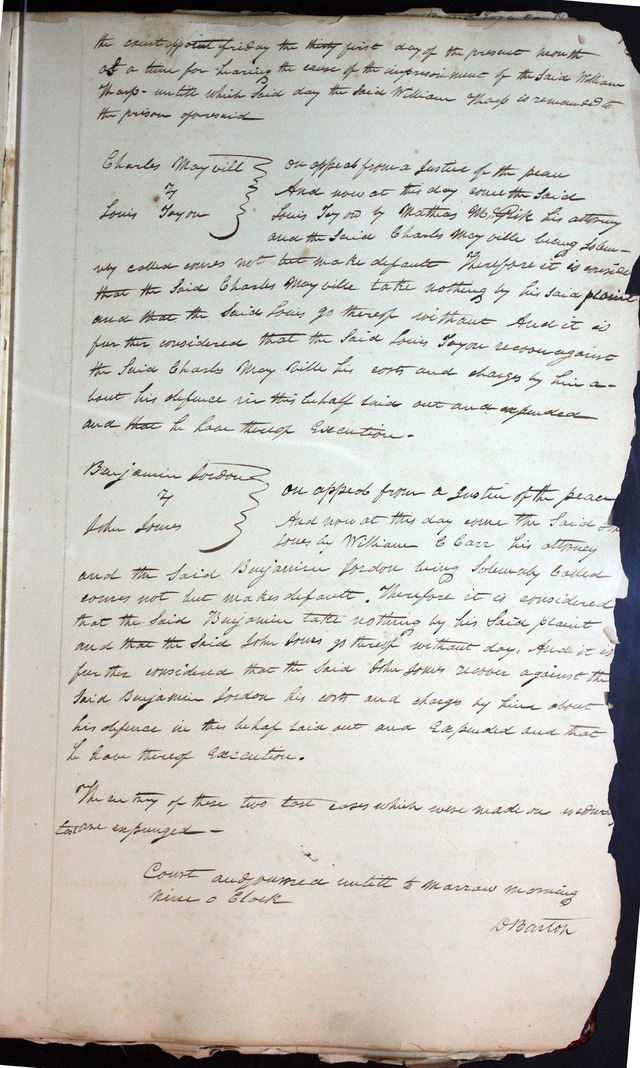 the court appoint friday the thirty first day of the present month
as a time for hearing the cause of the imprisonment of the said William
Tharp - untill which said day the said William Tharp is remanded to
the prison aforesaid
Charles Mayvill
vs
Louis Tayon
on appeal from a Justice of the peace
And now at this day came the said
Louis Tayon by Mathias McGirk his attorney
and the said Charles Mayville being solem-
nly called comes not but make default Therefore it is
that the said Charles Mayville take nothing by his said plaint
and that the said Louis go thereof without And it is
further considered that the said Louis Tayon recover against
the said Charles May Ville his costs and charges by him a-
bout his defence in this behalf laid out and expended
and that he have thereof Execution.
Benjamin Jordon
vs
John Jones
on appeal from a Justice of the peace
And now at this day came the said
Jones by William C Carr his attorney
and the said Benjamin Jordon being Solemnly Called
comes not but makes default. Therefore it is considered
that the said Benjamin take nothing by his said plaint
and that the said John Jones go thereof without day, And it is
further considered that the said John Jones recover against the
said Benjamin Jordon his costs and charges by him about
his defence in this behalf laid out and Expended and that
he have thereof Execution.
The entry of these two last cases which were made on
last are expunged -
Court adjourned untill to Morrow morning
Nine o Clock
D Barton